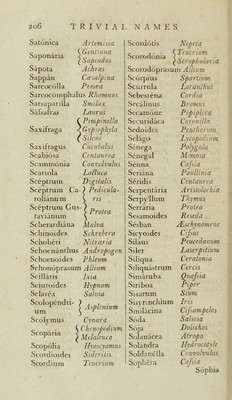 206 TRIVIAL NAMES
Satónica Artemisia
Saponária { Gentiana
Sapindus
Sapota Achras
Sappán Cæsalpina
Sarcocólla Penæa
Sarcocomphalus Rhamnus
Sarsaparilla Smilax
Sássafras Laurus
Saxifraga { Pimpinella
Gypsophyla
Silene
Saxifragus Cucubalus
Scabiosa Centaurea
Scammónia Convolvulus
Scariola Lactuca
Sceptrum Digitalis
Scéptrum Carolinum } Pedicularis
Scéptrum Gustaviánum } Protea
Scherardiána Malva
Schinoides Schrebera
Schobéri Nitraria
Schœnánthus Andropogon
Schoenoides Phleum
Schonóprasum Allium
Scilláris Ixia
Sciuroides Hypnum
Sclaréa Salvia
Scolopéndrium } Asplenium
Scólymus Cynara
Scopária { Chenopodium
Melaleuca
Scopólia Hyoscyamus
Scordioides Sideritis
Scordium Teucrium
Scordótis Nepeta
Scorodónia { Teucrium
Scrophularia
Scorodóprasum Allium
Scorpius Spartium
Scurrula Loranthus
Sebesténa Cordia
Secálinus Bromus
Secamóne Peplploca
Securidáca Coronilla
Sedoides Penthorum
Selágo Lycopodium
Sénega Polygala
Sénegal Mimosa
Sénna Cassia
Seriána Paullinia
Séridis Centaurea
Serpentária Aristolochia
Serpyllum Thymus
Serrária Protea
Sesamoides Reseda
Sésban Æschynomene
Sicyoides Cissus
Silaus Peucedanum
Siler Laserpitium
Siliqua Ceratonia
Siliquástrum Cercis
Simarúba Quassia
Siriboa Piper
Sisarum Sium
Sisyrinchium Iris
Smilácina Cissampelos
Sóda Salsola
Sója Dolichos
Solanácea Atropa
Solándra Hydrocotyle
Soldanélla Convolvulus
Sophéra Cassia
Sóphia